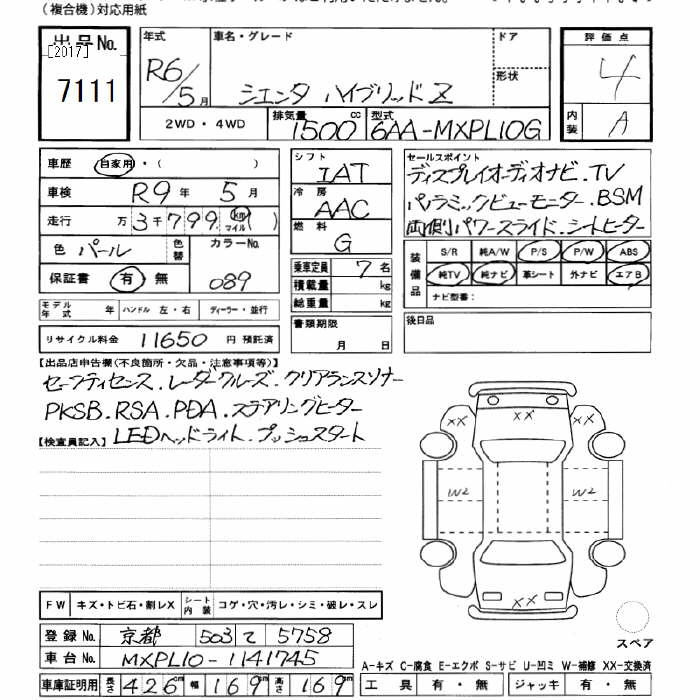 (複合機)対応用紙
出品No.
[2017]
7111
年式 車名・グレード ドア 評価点
R6/5月 シエンタ ハイブリッドZ 形状 4
2WD・4WD 排気量 1500cc 型式 6AA-MXPL10G 内装 A
車歴 自家用・( )
車検 R9年 5月
走行 万3千799km(マイル)
色 パール 色替 カラーNo.
保証書 有・無 089
モデル年式 年 ハンドル 左・右 ディーラー・並行
リサイクル料金 11650円 預託済
シフト IAT
冷房 AAC
燃料 G
乗車定員 7名
積載量 kg
総重量 kg
書類期限
月 日
セールスポイント
ディスプレイオーディオナビ.TV
パノラミックビューモニター.BSM
両側パワースライド.シートヒーター
装備品 S/R 純A/W P/S P/W ABS
純TV 純ナビ 革シート 外ナビ エアB
ナビ型番:
後日品
【出品店申告欄(不良箇所・欠品・注意事項等)】
セーフティセンス.レーダークルーズ.クリアランスソナー
PKSB.RSA.PDA.ステアリングヒーター
LEDヘッドライト.プッシュスタート
【検査員記入】
XX XX XX
W2 W2
XX
スペア
FW キズ・トビ石・割レX シート内装 コゲ・穴・汚レ・シミ・破レ・スレ
登録No. 京都 503 て 5758
車台No. MXPL10-1141745
車庫証明用 長さ 426cm 幅 169cm 高さ 169cm
A-キズ C-腐食 E-エクボ S-サビ U-凹ミ W-補修 XX-交換済
工具 有・無 ジャッキ 有・無